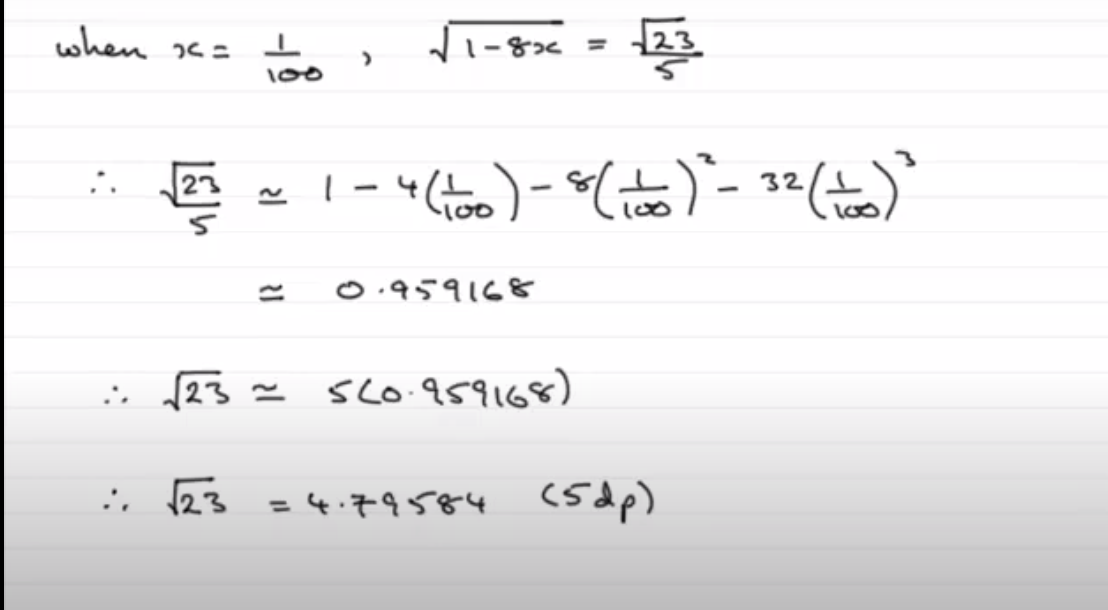 when x = 1/100 , √(1-8x) = √23/5
∴ √23/5 ≃ 1 - 4(1/100) - 8(1/100)² - 32(1/100)³
≃ 0.959168
∴ √23 ≃ 5(0.959168)
∴ √23 = 4.79584 (5dp)